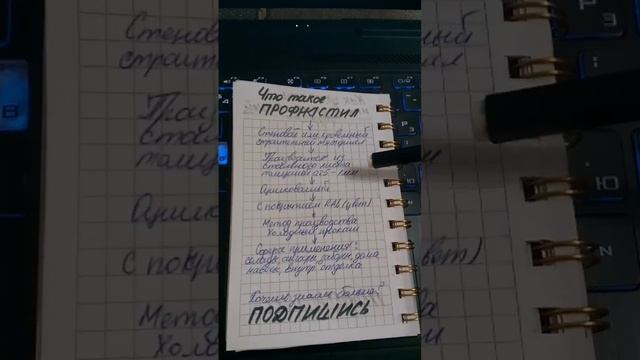 Что такое
ПРОФНАСТИЛ
Стеновой или кровельный
строительный материал
Производится из
стального листа
толщиной 0,5-1мм
Оцинкованный
С покрытием RAL (цвет)
Метод производства
Холодный прокат
Сфера применения:
склады, ангары, заборы, дома
навесы, внутр. отделка
Хочешь знать больше?
ПОДПИШИСЬ